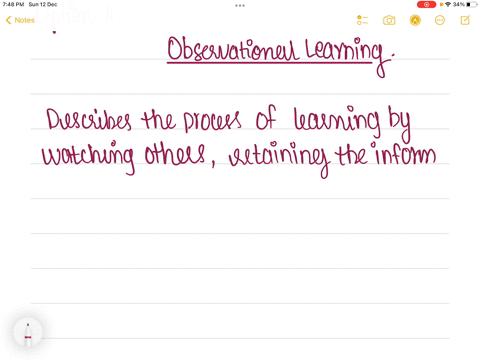 7:48 PM Sun 12 Dec
34%
Notes
Observational Learning.
Describes the process of learning by
watching others, retaining the inform